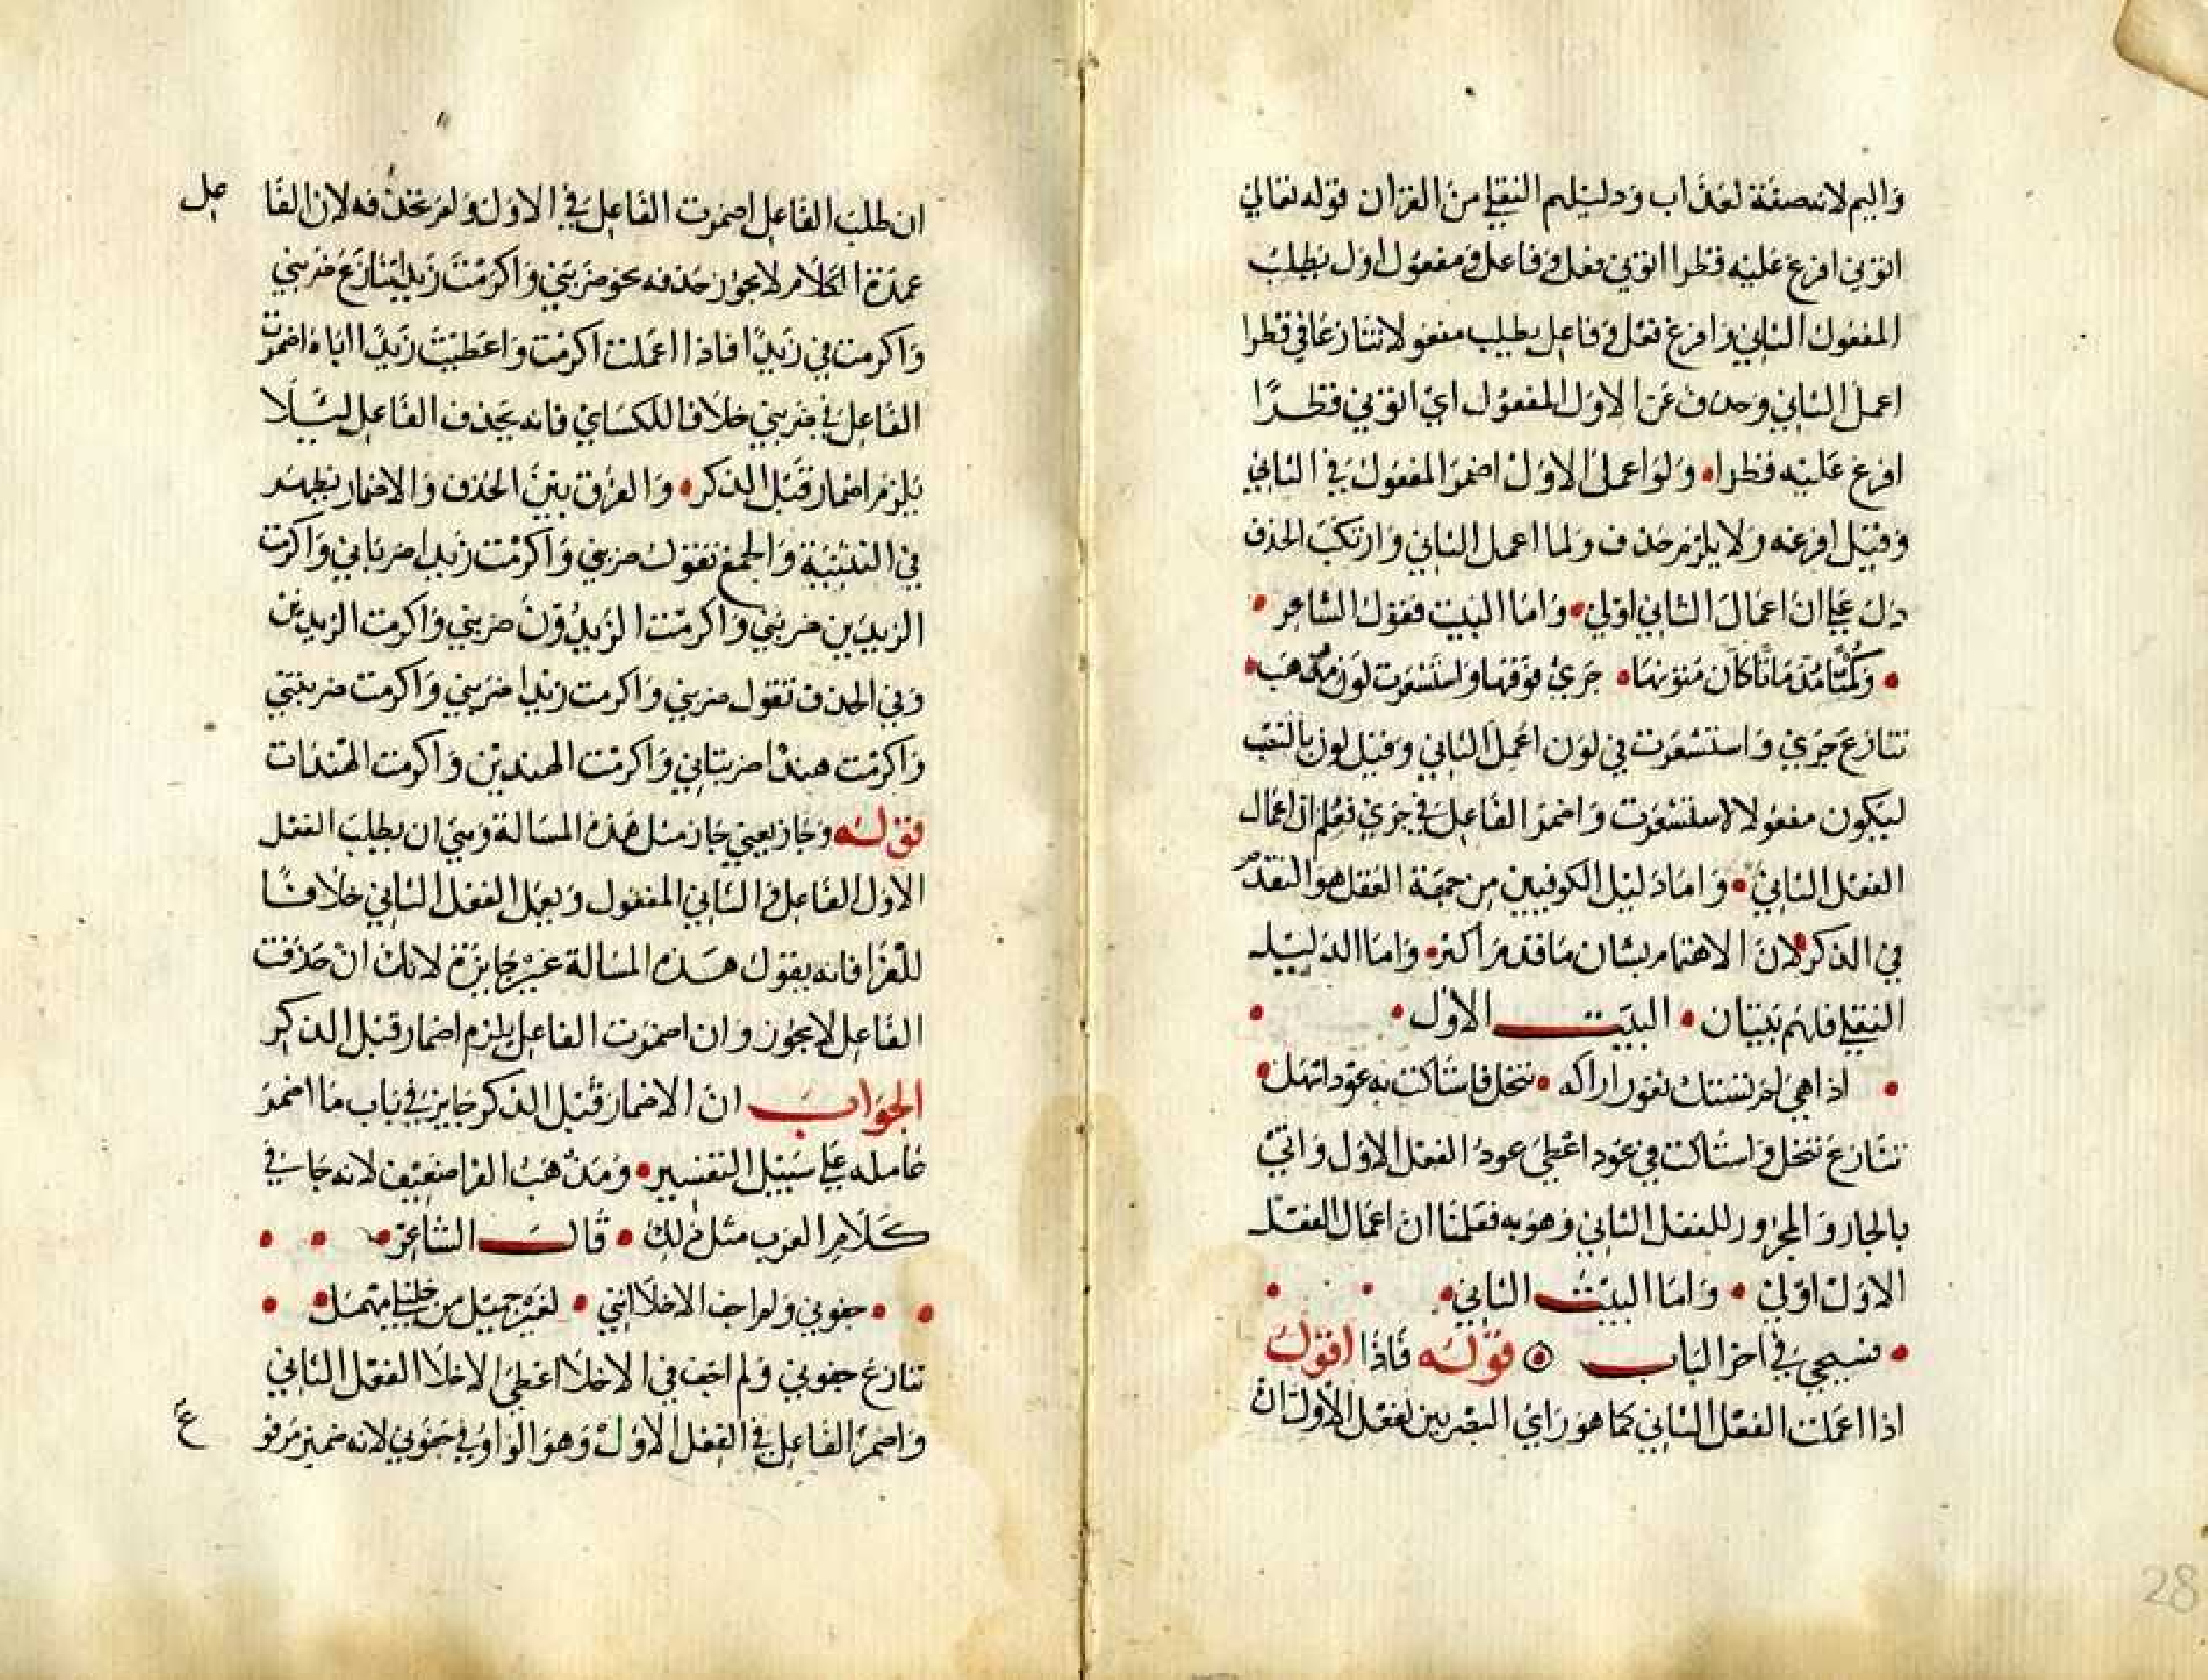 واليم لانه صفة لعذاب ودليلهم النقلي من القران قوله تعالي
اتوني افرغ عليه قطرا اتوني فعل وفاعل ومفعول اول يطلب
المفعول الثاني وافرغ فعل وفاعل يطلب مفعولا تنازعا في قطرا
اعمل الثاني وحذف عن الاول المفعول اي اتوني قطرًا
افرغ عليه قطرا ولو اعمل الاول اضمر المفعول في الثاني
وقيل افرغه ولا يلزم حذف ولما اعمل الثاني وارتكب الحذف
دل علي ان اعمال الثاني اولي واما البيت فقول الشاعر
وكمتا مدماتا كان متونها جري فوقها واستشعرت لون مذهب
تنازع جري واستشعرت في لون اعمل الثاني وقيل لون بالنصب
ليكون مفعولا لاستشعرت واضمر الفاعل في جري فعلم ان اعمال
الفعل الثاني واما دليل الكوفيين من جهة العقل هو التقدم
في الذكر لان الاهتمام بشان ما قدم اكثر واما الدليل
النقلي فلهم بيتان البيت الاول
اذا هي لم تستك بعود اراكه تنخل فاستاكت به عود اسحل
تنازع تنخل واستاكت في عود اعطي عود الفعل الاول واتي
بالجار والمجرور للفعل الثاني وهو به فعلمنا ان اعمال الفعل
الاول اولي واما البيت الثاني
فسيجي في اخر الباب قوله فاذا اقول
اذا اعملت الفعل الثاني كما هو راي البصريين لفعل الاول ان
ان طلب الفاعل اضمرت الفاعل في الاول ولم تحذفه لان الفا عل
عمدة الكلام لا يجوز حذفه نحو ضربني واكرمت زيدا تنازع ضربني
واكرمت في زيدًا فاذا اعملت اكرمت واعطيت زيدًا اياه اضمرت
الفاعل في ضربني خلافا للكسائي فانه يحذف الفاعل ليلا
يلزم اضمار قبل الذكر والفرق بين الحذف والاضمار يظهر
في التثنية والجمع تقول ضربني واكرمت زيدا ضرباني واكرمت
الزيدين ضربني واكرمت الزيدون ضربني واكرمت الزيدين
وفي الحذف تقول ضربني واكرمت زيدا ضربني واكرمت ضربتني
واكرمت هندا ضربتاني واكرمت الهندين واكرمت الهندات
قوله وجاز يعني جاز مثل هذه المسالة وهي ان يطلب الفعل
الاول الفاعل والثاني المفعول ويعمل الفعل الثاني خلافا
للفرا فانه يقول هذه المسالة غير جايزة لانك ان حذفت
الفاعل لا يجوز وان اضمرت الفاعل يلزم اضمار قبل الذكر
الجواب ان الاضمار قبل الذكر جايز في باب ما اضمر
عامله علي سبيل التفسير ومذهب الفرا ضعيف لانه جا في
كلام العرب مثل ذلك قال الشاعر
جفوني ولم اجف الاخلا انني لغير جميل من خليلي مهمل
تنازع جفوني ولم اجف في الاخلا اعطي الاخلا الفعل الثاني
واضمر الفاعل في الفعل الاول وهو الواو في جفوني لانه ضمير مرفو ع